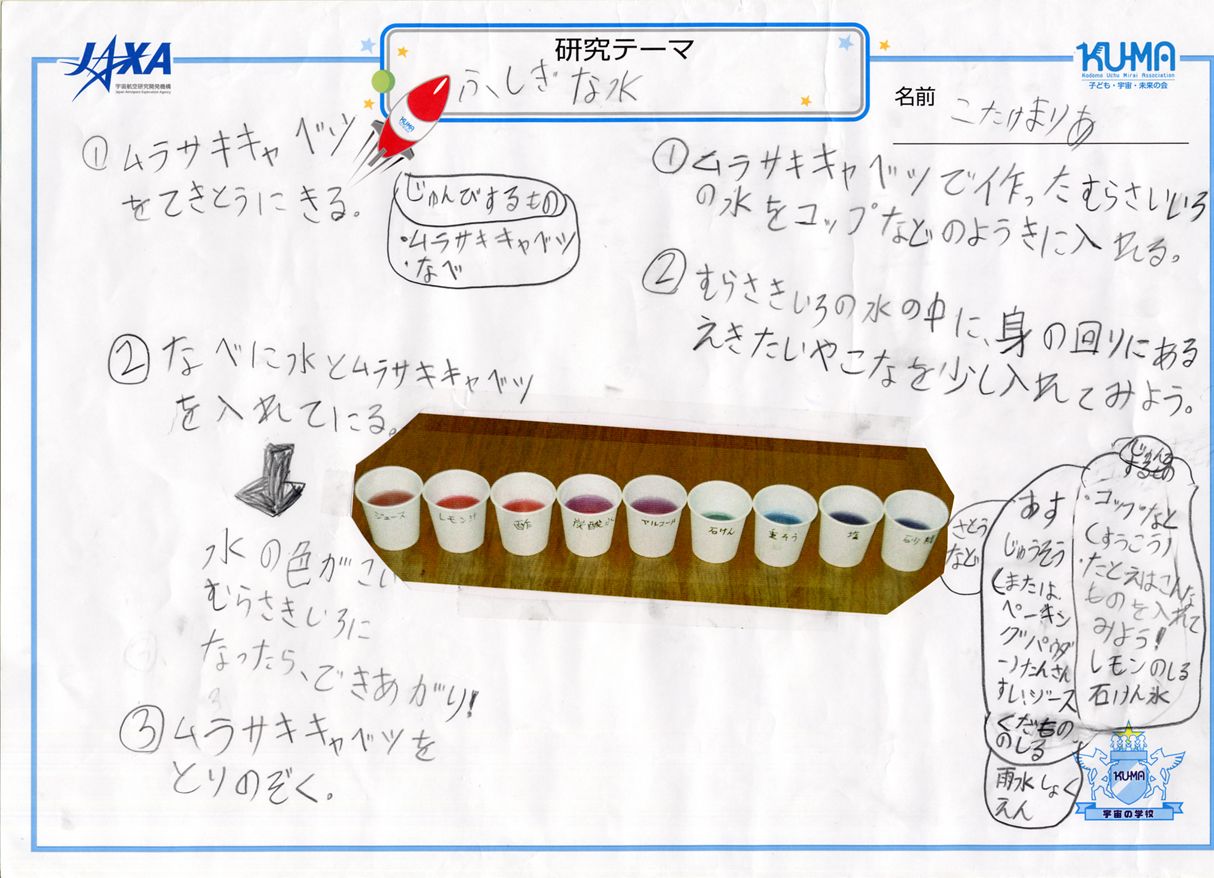 JAXA
宇宙航空研究開発機構
Japan Aerospace Exploration Agency
研究テーマ
ふしぎな水
KUMA
Kodomo Uchu Mirai Association
子ども・宇宙・未来の会
名前
こたけまりあ
KUMA
①ムラサキキャベツ
をてきとうにきる。
じゅんびするもの
・ムラサキキャベツ
・なべ
②なべに水とムラサキキャベツ
を入れてにる。
水の色がこい
むらさきいろに
なったら、できあがり!
③ムラサキキャベツを
とりのぞく。
①ムラサキキャベツで作ったむらさいいろ
の水をコップなどのようきに入れる。
②むらさきいろの水の中に、身の回りにある
えきたいやこなを少し入れてみよう。
ジュース
レモン汁
酢
炭酸水
アルコール
石けん
重そう
塩
砂糖
じゅんび
するもの
・コップなど
(すうこう)
・たとえばこんな
ものを入れて
みよう!
レモンのしる
石けん水
おす
じゅうそう
(または、
ベーキン
グパウダ
ー)たんさん
すい!ジース
くだもの
のしる
雨水しょく
えん
さとう
など
KUMA
宇宙の学校